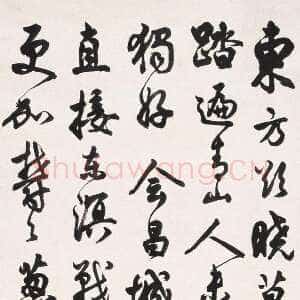 東方欲曉莫
踏遍青山人未
獨好 会昌城
直接東溟戰
更加欝々葱
shufawang.CN